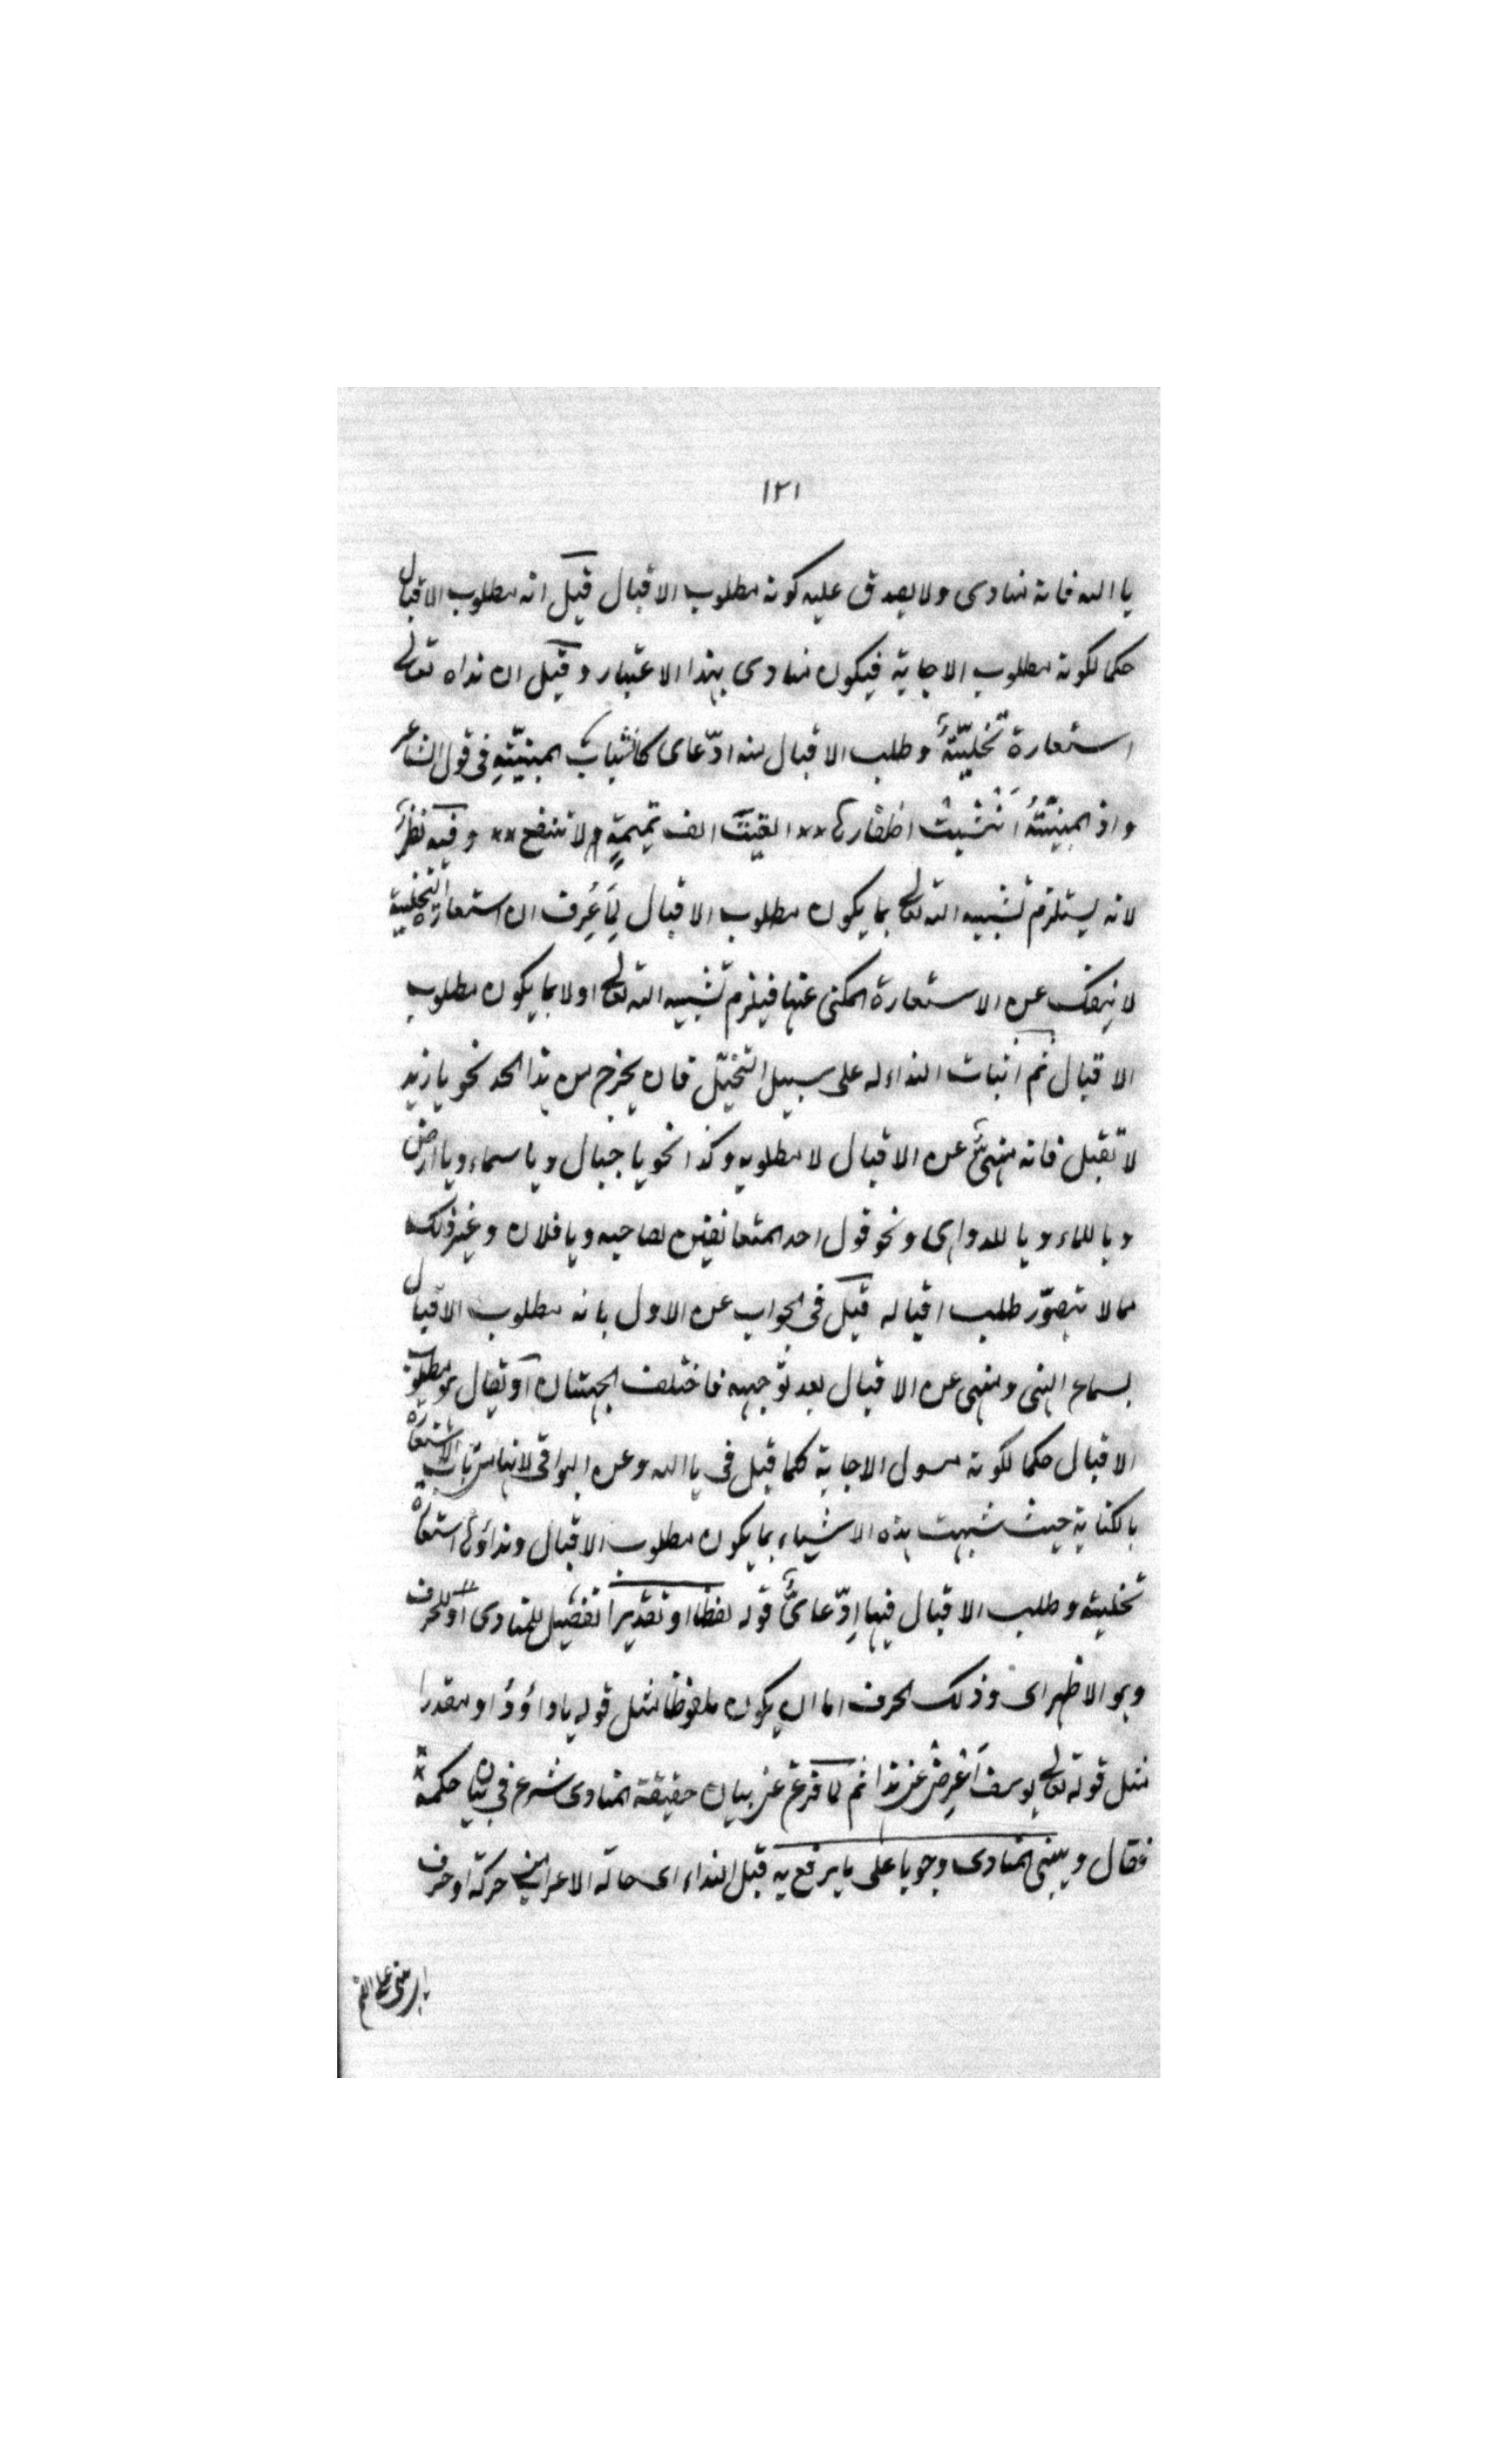 ١٢١
يا الله فانه منادى ولا يصدق عليه كونه مطلوب الاقبال قيل انه مطلوب الاقبال
حكما لكونه مطلوب الاجابة فيكون منادى بهذا الاعتبار وقيل ان نداه تعالى
استعارة تخليّيّةٌ وطلب الاقبال منه ادّعاى كانشباث المبنيّتهِ فى قول الشاعر
واذ المبنيّتهُ اَنْشبتْ اظفارها ×× القيتَ الف تميمةٍ لا تنفع ×× وفيه نظرٌ
لانه يستلزم تشبيه الله تعالى بما يكون مطلوب الاقبال لِمَا عُرِف ان استعارة التخليية
لا ينفك عن الاستعارة المكنى عنها فيلزم تشبيه الله تعالى اولا بما يكون مطلوب
الاقبال ثم اثبات النداء له على سبيل التخيّل فان يخرج من هذا الحد نحو يا زيد
لا تقبل فانه منهىٌّ عن الاقبال لا مطلوبه وكذا نحو يا جبال ويا سماء ويا ارض
ويا للماء ويا للدواهى ونحو قول احد المتعانقين لصاحبه ويا فلان وغير ذلك
مما لا يتصوّر طلب اقباله قيل فى الجواب عن الاول بانه مطلوب الاقبال
بسماع النهى ومنهى عن الاقبال بعد توجهه فاختلف الجهتان او يقال هو مطلوب
الاقبال حكما لكونه مسول الاجابة كما قيل فى يا الله وعن البواقى لانها من باب الاستعارة
بالكناية حيث شبهت هذه الاشياء بما يكون مطلوب الاقبال ونداؤها استعارة
تخليية وطلب الاقبال فيها اِدّعاىٌّ قوله لفظا او تقديرا تفضيل للمنادى او للحرف
وهو الاظهر اى وذلك الحرف اما ان يكون ملفوظا مثل قوله يا داؤدُ او مقدرا
مثل قوله تعالى يوسف اَعْرِضْ عن هذا ثم لما فرغ عن بيان حقيقة المنادى شرع فى بيان حكمه
فقال ويبنى المنادى وجوبا على ما يرفع به قبل النداء اى حالة الاعراب من حركة او حرف